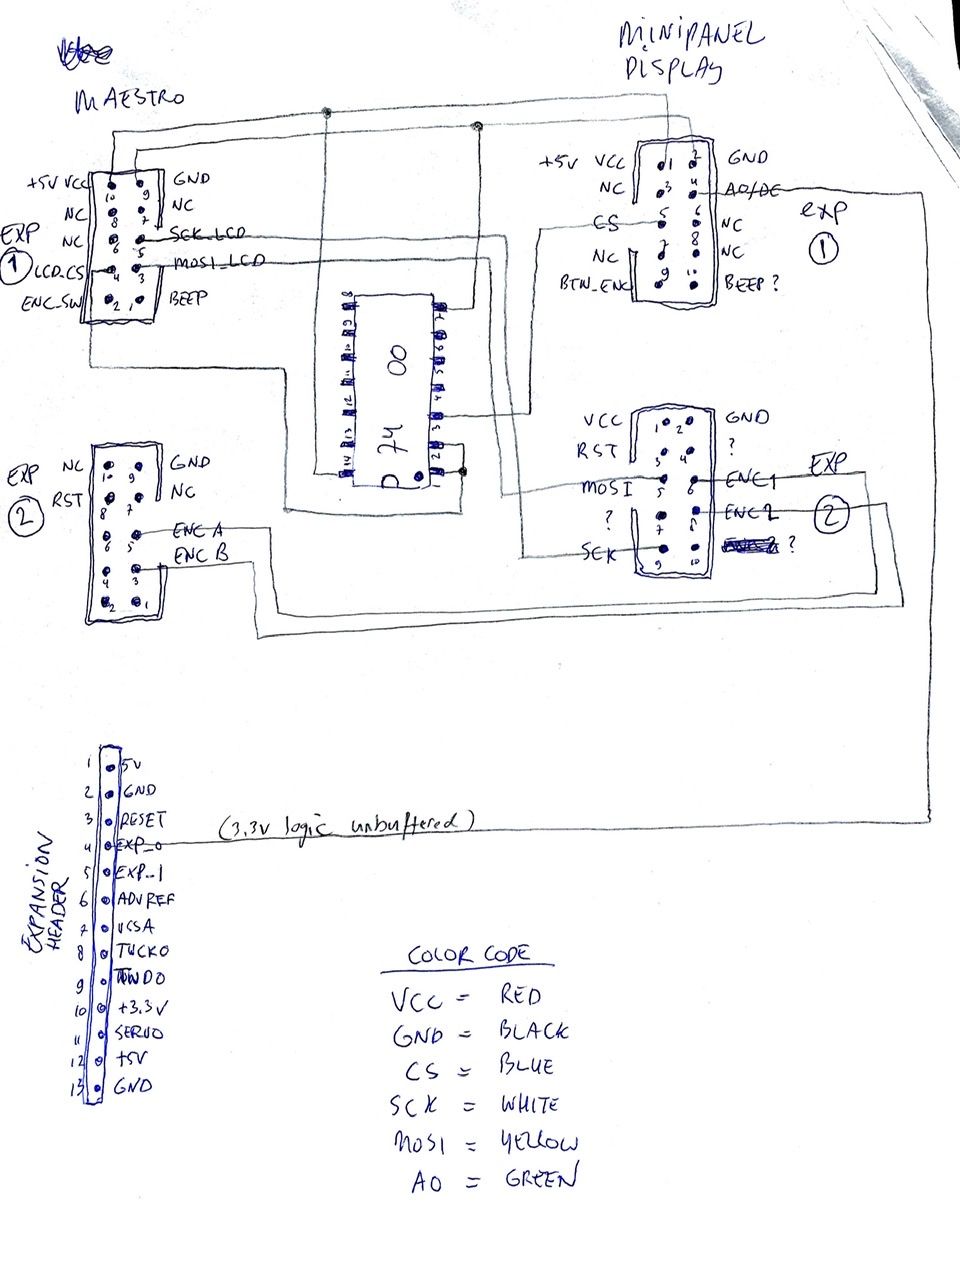 MAESTRO
MINIPANEL
DISPLAY
+5V VCC
GND
NC
NC
NC
SCK_LCD
LCD_CS
MOSI_LCD
ENC_SW
BEEP
10 9
8 7
6 5
4 3
2 1
EXP
1
+5V VCC
GND
NC
A0/DC
CS
NC
NC
NC
BTN_ENC
BEEP ?
1 2
3 4
5 6
7 8
9 10
exp
1
74 00
8
9
10
11
12
13
14
7
6
5
4
3
2
1
EXP
2
NC
GND
RST
NC
ENC A
ENC B
10 9
8 7
6 5
4 3
2 1
VCC
GND
RST
?
MOSI
ENC1
?
ENC2
SCK
?
1 2
3 4
5 6
7 8
9 10
EXP
2
EXPANSION
HEADER
1 5V
2 GND
3 RESET
4 EXP_0
(3.3V logic unbuffered)
5 EXP_1
6 ADVREF
7
8 TWCK0
9 TWD0
10 +3.3V
11 SERVO
12 +5V
13 GND
COLOR CODE
VCC = RED
GND = BLACK
CS = BLUE
SCK = WHITE
MOSI = YELLOW
A0 = GREEN